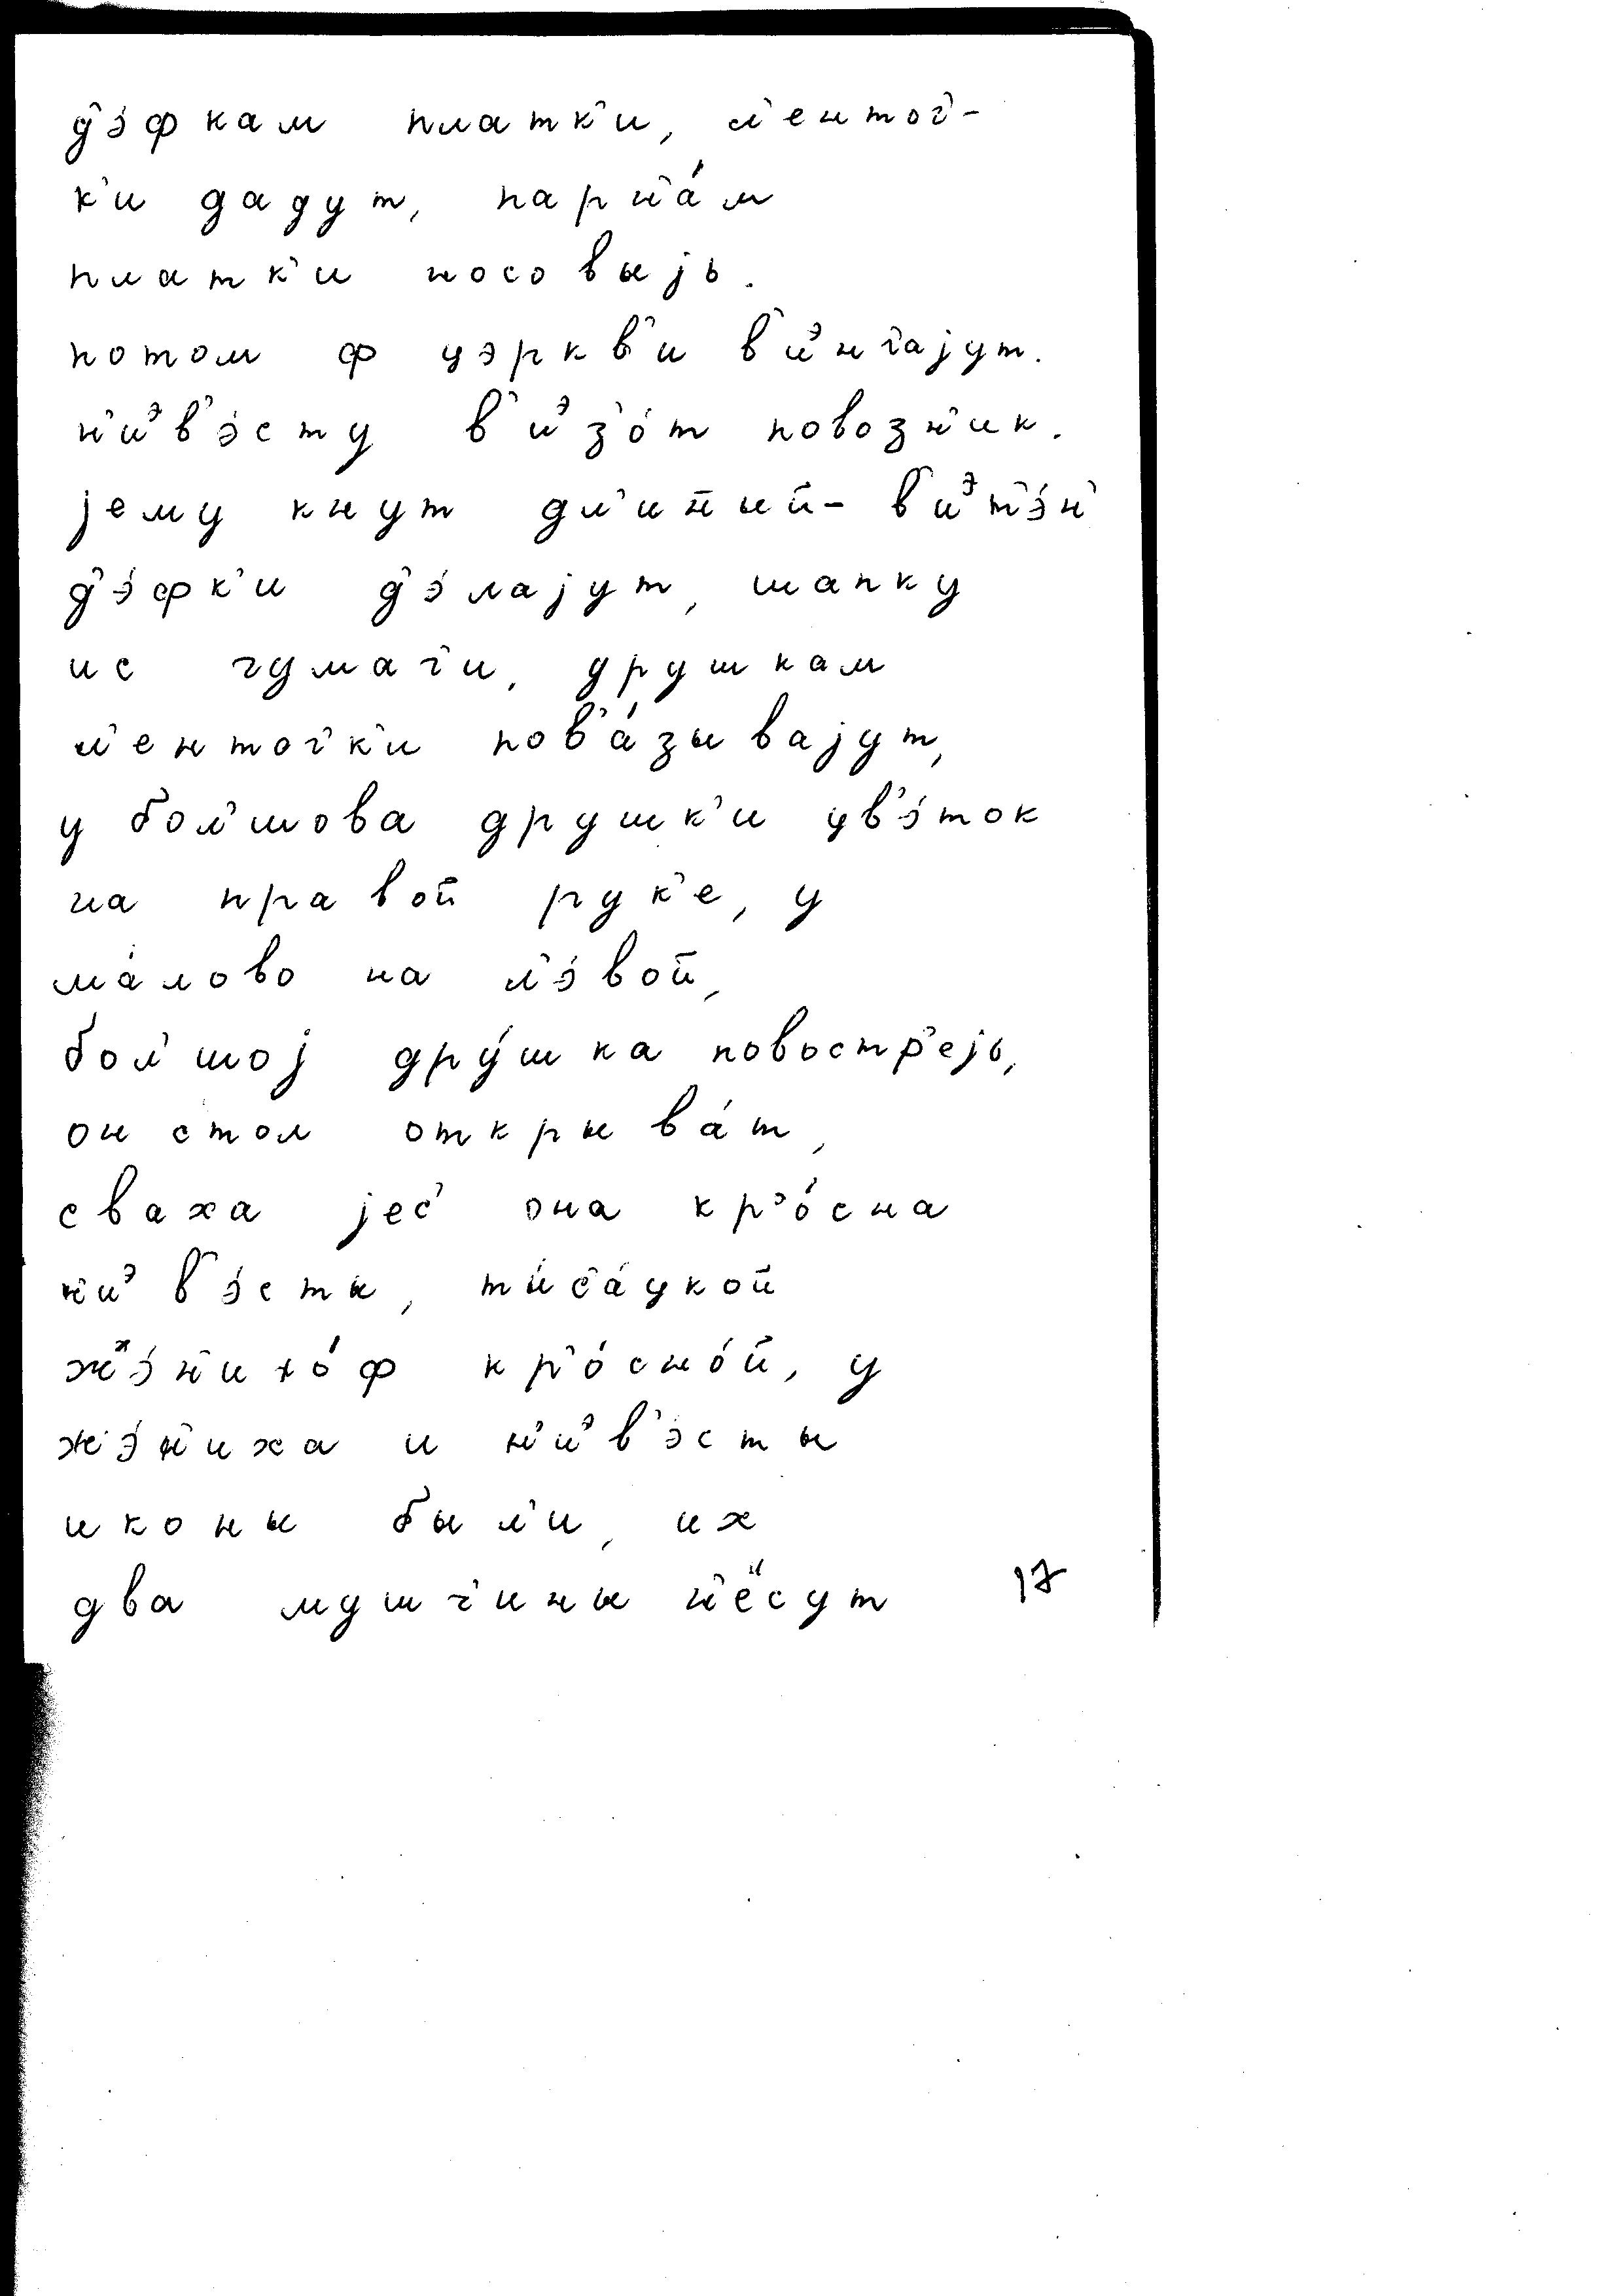 д'э́фкам платк'и, л'енточ'-
к'и дадут, парн'а́м
платк'и носовыјь.
потом ф цэркв'и в'иэнч'ајут.
н'иэв'э́сту в'иэз'о́т повозн'ик.
јему кнут дл'ин̄ый- в'иэт'э́н'
д'э́фк'и д'э́лајут, шапку
ис гумаг'и, друшкам
л'енточ'к'и пов'а́зывајут,
у бол'шова друшк'и цв'э́ток
на правой рук'е, у
ма́лово на л'э́вой,
бол'шој дру́шка повостр'ејь,
он стол открыва́т,
сваха јес' она кр'о́сна
н'иэв'э́сты, ти́с'а́цкой
жэ́н'ихо́ф кр'о́сно́й, у
жэ́н'иха и н'иэв'э́сты
иконы был'и, их
два мушч'ины н'ёсут
17